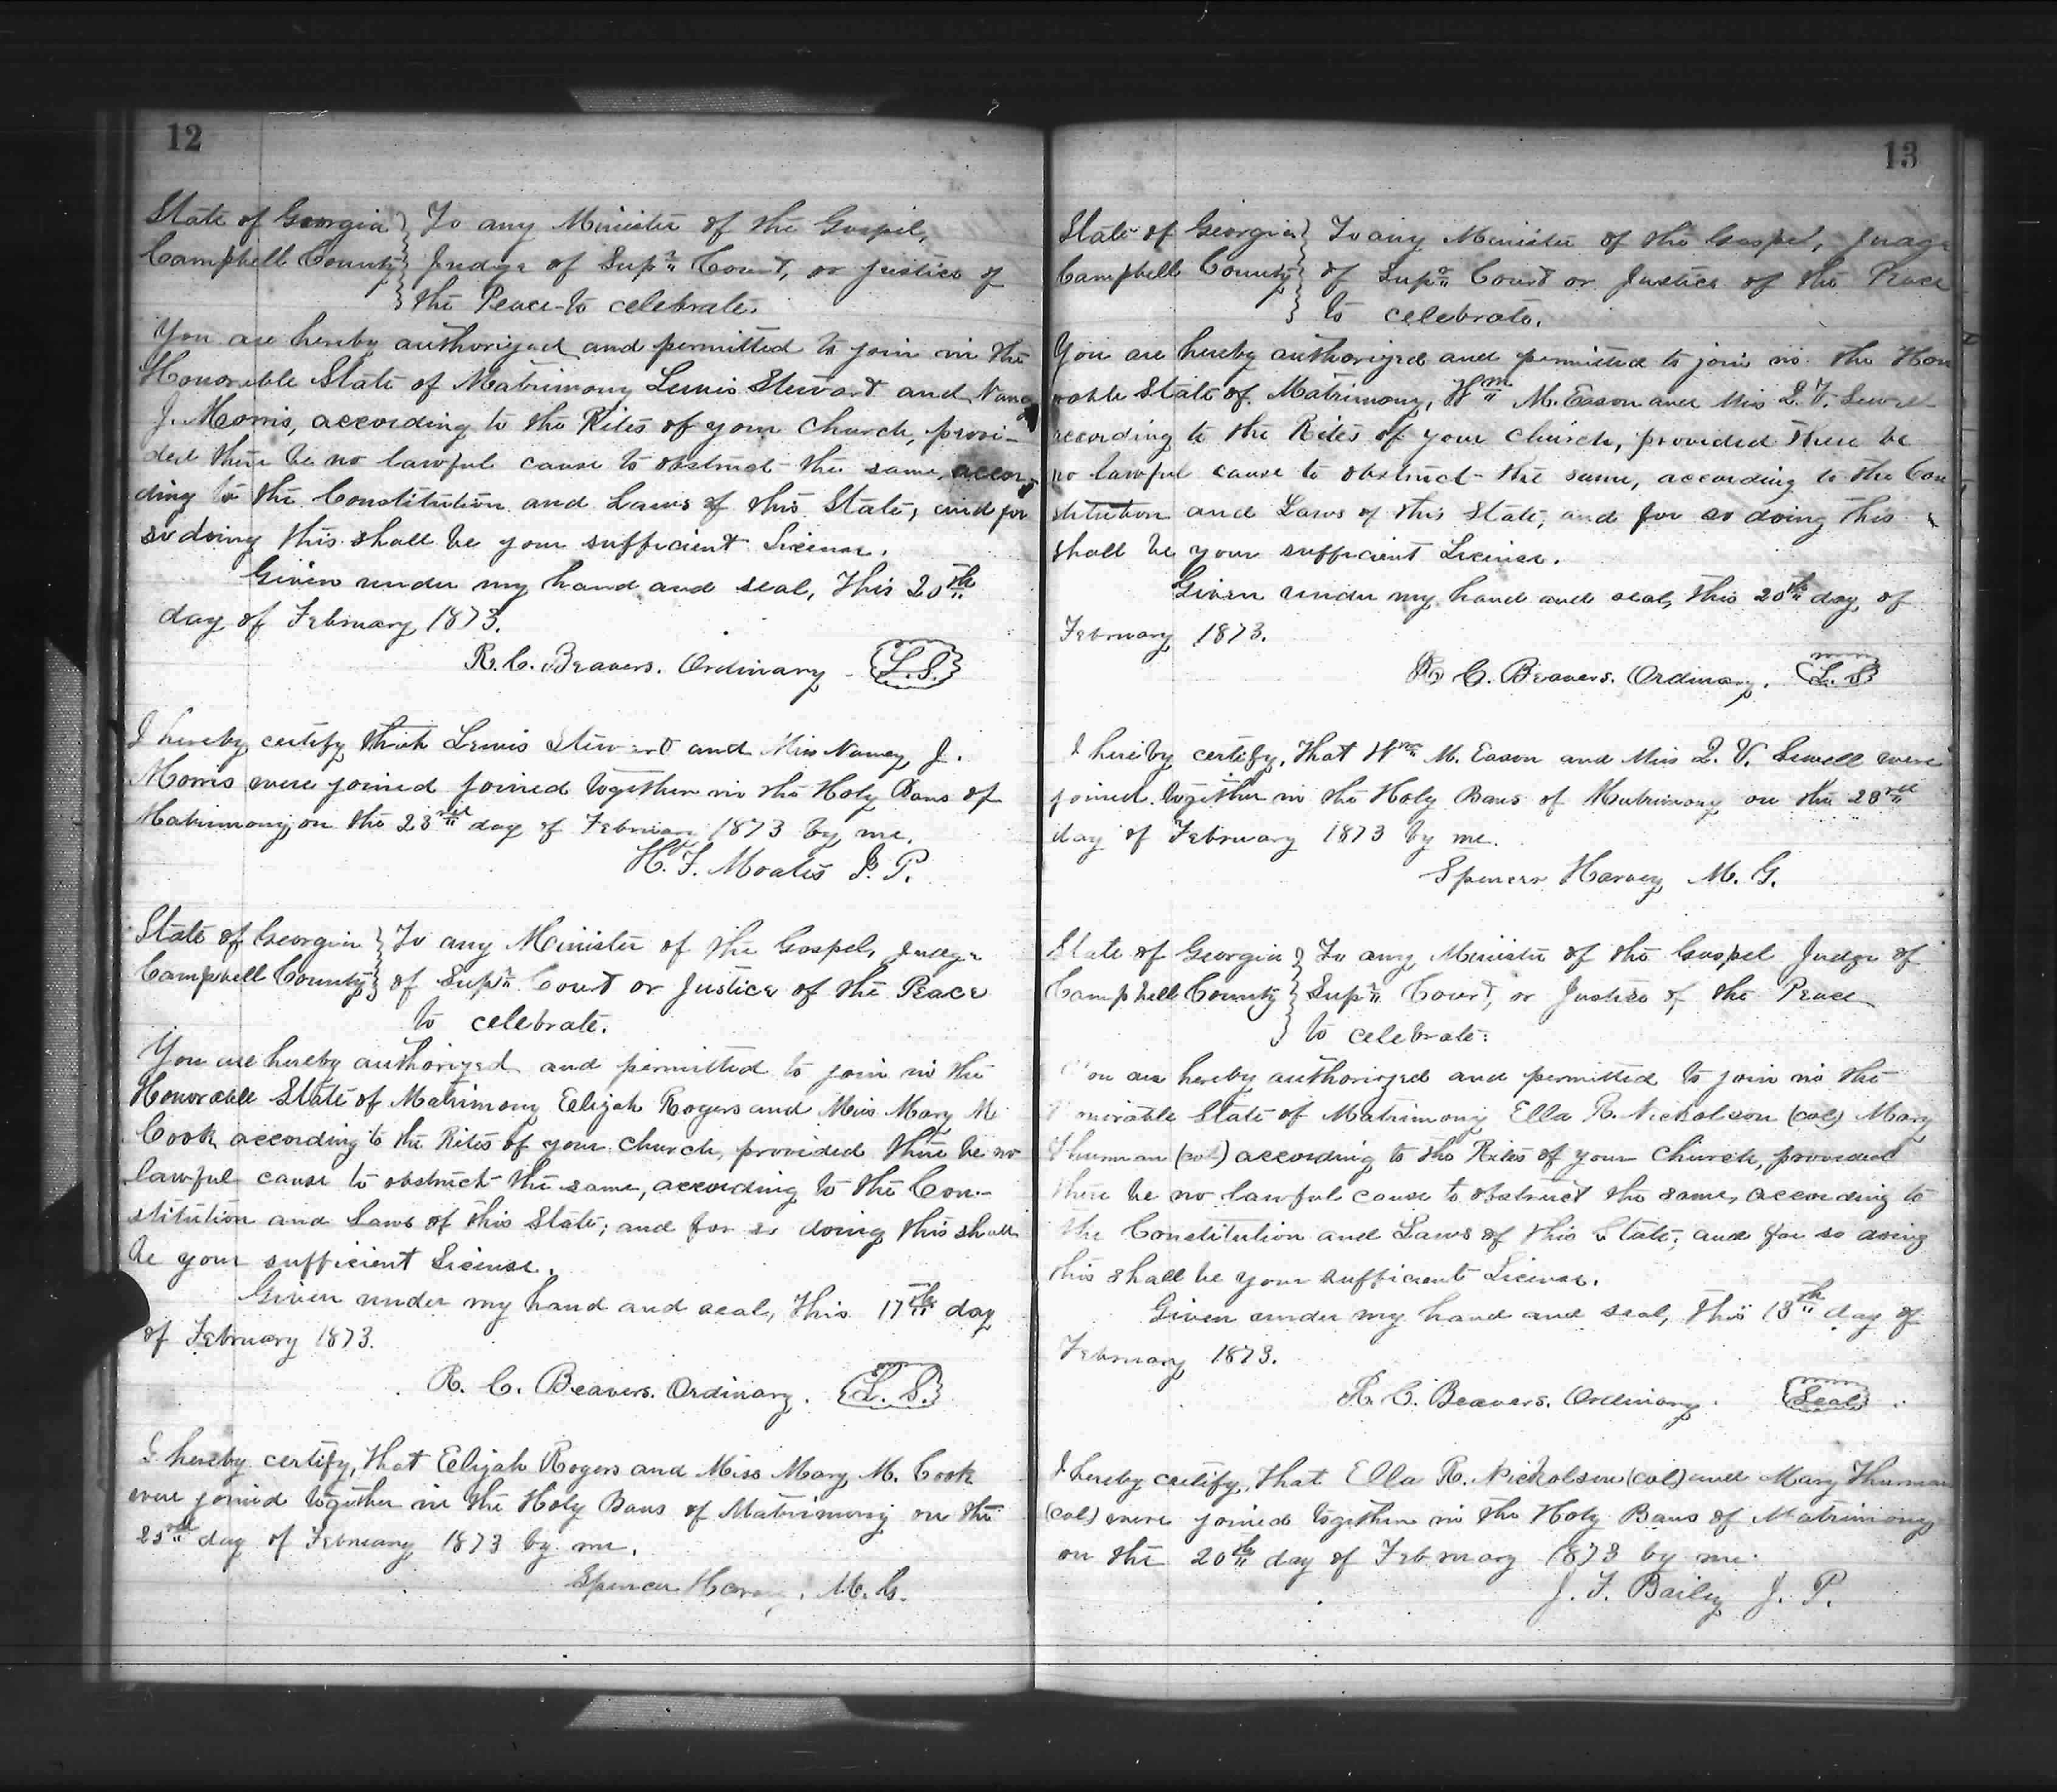 12
State of Georgia } To any Minister of the Gospel,
Campbell County } Judge of Supr Court, or Justice of
} the Peace to celebrate.
You are hereby authorized and permitted to join in the
Honorable State of Matrimony Lewis Stewart and Nancy
J. Morris, according to the Rites of your Church, provi-
ded there be no lawful cause to obstruct the same, accor-
ding to the Constitution and Laws of this State; and for
so doing this shall be your sufficient License.
Given under my hand and seal, this 20th
day of February 1873.
R. C. Beavers. Ordinary L.S.
I hereby certify that Lewis Stewart and Miss Nancy J.
Morris were joined joined together in the Holy Bans of
Matrimony on the 23rd day of February 1873 by me.
H. F. Moates J. P.
State of Georgia } To any Minister of the Gospel, Judge
Campbell County } of Supr Court or Justice of the Peace
to celebrate.
You are hereby authorized and permitted to join in the
Honorable State of Matrimony Elijah Rogers and Miss Mary M
Cook according to the Rites of your Church, provided there be no
lawful cause to obstruct the same, according to the Con-
stitution and Laws of this State; and for so doing this shall
be your sufficient License.
Given under my hand and seal, this 17th day
of February 1873.
R. C. Beavers. Ordinary. L. S.
I hereby certify, that Elijah Rogers and Miss Mary M. Cook
were joined together in the Holy Bans of Matrimony on the
23rd day of February 1873 by me.
Spencer Harvey. M. G.
13
State of Georgia } To any Minister of the Gospel, Judge
Campbell County } of Supr Court or Justice of the Peace
} to celebrate.
You are hereby authorized and permitted to join in the Hon
orable State of Matrimony, Wm M. Eason and Miss Q. V. Sewell
according to the Rites of your Church, provided there be
no lawful cause to obstruct the same, according to the Con
stitution and Laws of this State; and for so doing this
shall be your sufficient License.
Given under my hand and seal, this 20th day of
February 1873.
R C. Beavers. Ordinary. L. S
I hereby certify, that Wm M. Eason and Miss Q. V. Sewell were
joined together in the Holy Bans of Matrimony on the 23rd
day of February 1873 by me.
Spencer Harvey M. G.
State of Georgia } To any Minister of the Gospel Judge of
Campbell County } Supr Court, or Justice of the Peace
} to celebrate:
You are hereby authorized and permitted to join in the
Honorable State of Matrimony Ella R. Nickolson (col) Mary
Thurman (col) according to the Rites of your Church, provided
there be no lawful cause to obstruct the same, according to
the Constitution and Laws of this State; and for so doing
this shall be your sufficient License.
Given under my hand and seal, this 18th day of
February 1873.
R. C. Beavers. Ordinary. Seal
I hereby certify, that Ella R. Nickolson (col) and Mary Thurman
(col) were joined together in the Holy Bans of Matrimony
on the 20th day of February 1873 by me.
J. F. Baily J. P.